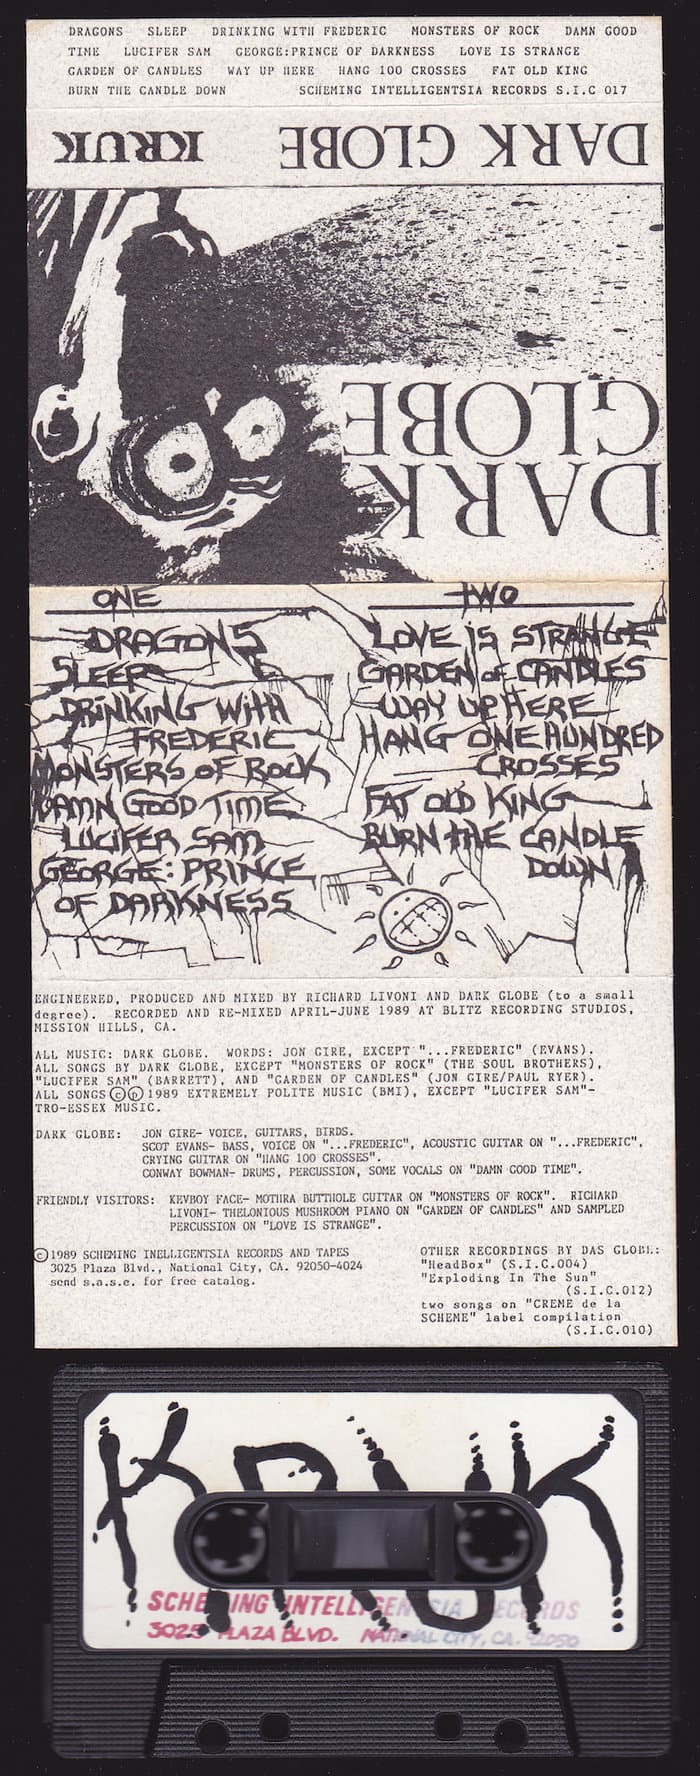 DRAGONS SLEEP DRINKING WITH FREDERIC MONSTERS OF ROCK DAMN GOOD
TIME LUCIFER SAM GEORGE:PRINCE OF DARKNESS LOVE IS STRANGE
GARDEN OF CANDLES WAY UP HERE HANG 100 CROSSES FAT OLD KING
BURN THE CANDLE DOWN SCHEMING INTELLIGENTSIA RECORDS S.I.C 017
DARK GLOBE KRUK
DARK
GLOBE
ONE
DRAGONS
SLEEP
DRINKING WITH
FREDERIC
MONSTERS OF ROCK
DAMN GOOD TIME
LUCIFER SAM
GEORGE: PRINCE
OF DARKNESS
TWO
LOVE iS STRANGE
GARDEN of CANDLES
WAY UP HERE
HANG ONE HUNDRED
CROSSES
FAT OLD KING
BURN tHE CANDLE
DOWN
ENGINEERED, PRODUCED AND MIXED BY RICHARD LIVONI AND DARK GLOBE (to a small
degree). RECORDED AND RE-MIXED APRIL-JUNE 1989 AT BLITZ RECORDING STUDIOS,
MISSION HILLS, CA.
ALL MUSIC: DARK GLOBE. WORDS: JON GIRE, EXCEPT "...FREDERIC" (EVANS).
ALL SONGS BY DARK GLOBE, EXCEPT "MONSTERS OF ROCK" (THE SOUL BROTHERS),
"LUCIFER SAM" (BARRETT), AND "GARDEN OF CANDLES" (JON GIRE/PAUL RYER).
ALL SONGS ©℗ 1989 EXTREMELY POLITE MUSIC (BMI), EXCEPT "LUCIFER SAM"-
TRO-ESSEX MUSIC.
DARK GLOBE: JON GIRE- VOICE, GUITARS, BIRDS.
SCOT EVANS- BASS, VOICE ON "...FREDERIC", ACOUSTIC GUITAR ON "...FREDERIC",
CRYING GUITAR ON "HANG 100 CROSSES".
CONWAY BOWMAN- DRUMS, PERCUSSION, SOME VOCALS ON "DAMN GOOD TIME".
FRIENDLY VISITORS: KEVBOY FACE- MOTHRA BUTTHOLE GUITAR ON "MONSTERS OF ROCK". RICHARD
LIVONI- THELONIOUS MUSHROOM PIANO ON "GARDEN OF CANDLES" AND SAMPLED
PERCUSSION ON "LOVE IS STRANGE".
©1989 SCHEMING INELLIGENTSIA RECORDS AND TAPES
3025 Plaza Blvd., National City, CA. 92050-4024
send s.a.s.e. for free catalog.
OTHER RECORDINGS BY DAS GLOBE:
"HeadBox" (S.I.C.004)
"Exploding In The Sun"
(S.I.C.012)
two songs on "CREME de la
SCHEME" label compilation
(S.I.C.010)
KRUK
SCHEMING INTELLIGENTSIA RECORDS
3025 PLAZA BLVD. NATIONAL CITY, CA. 92050